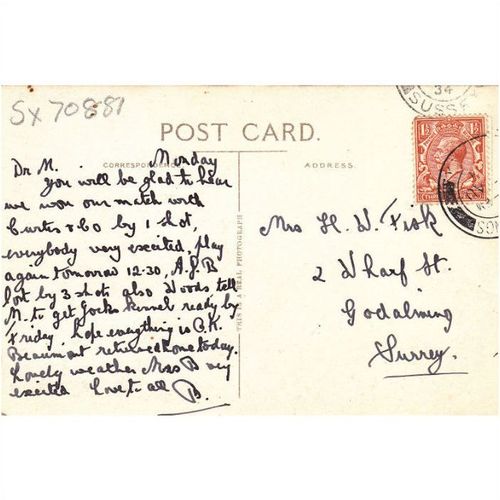 SX 70881
34
SUSSE
POST CARD.
CORRESPONDENCE
ADDRESS.
THIS IS A REAL PHOTOGRAPH
1½ 1½
Dr M. Monday
You will be glad to hear
we won our match with
Curtis & Co by 1 shot,
everybody very excited, play
again tomorrow 12-30, A.G.B
lost by 3 shots also Woods tell
M. to get Jocks kennel ready by
Friday hope everything is O.K.
Beaumont returned home today.
Lovely weather Mrs B very
excited Love to all B.
Mrs H. W. Fisk
2 Wharf St.
Godalming
Surrey.